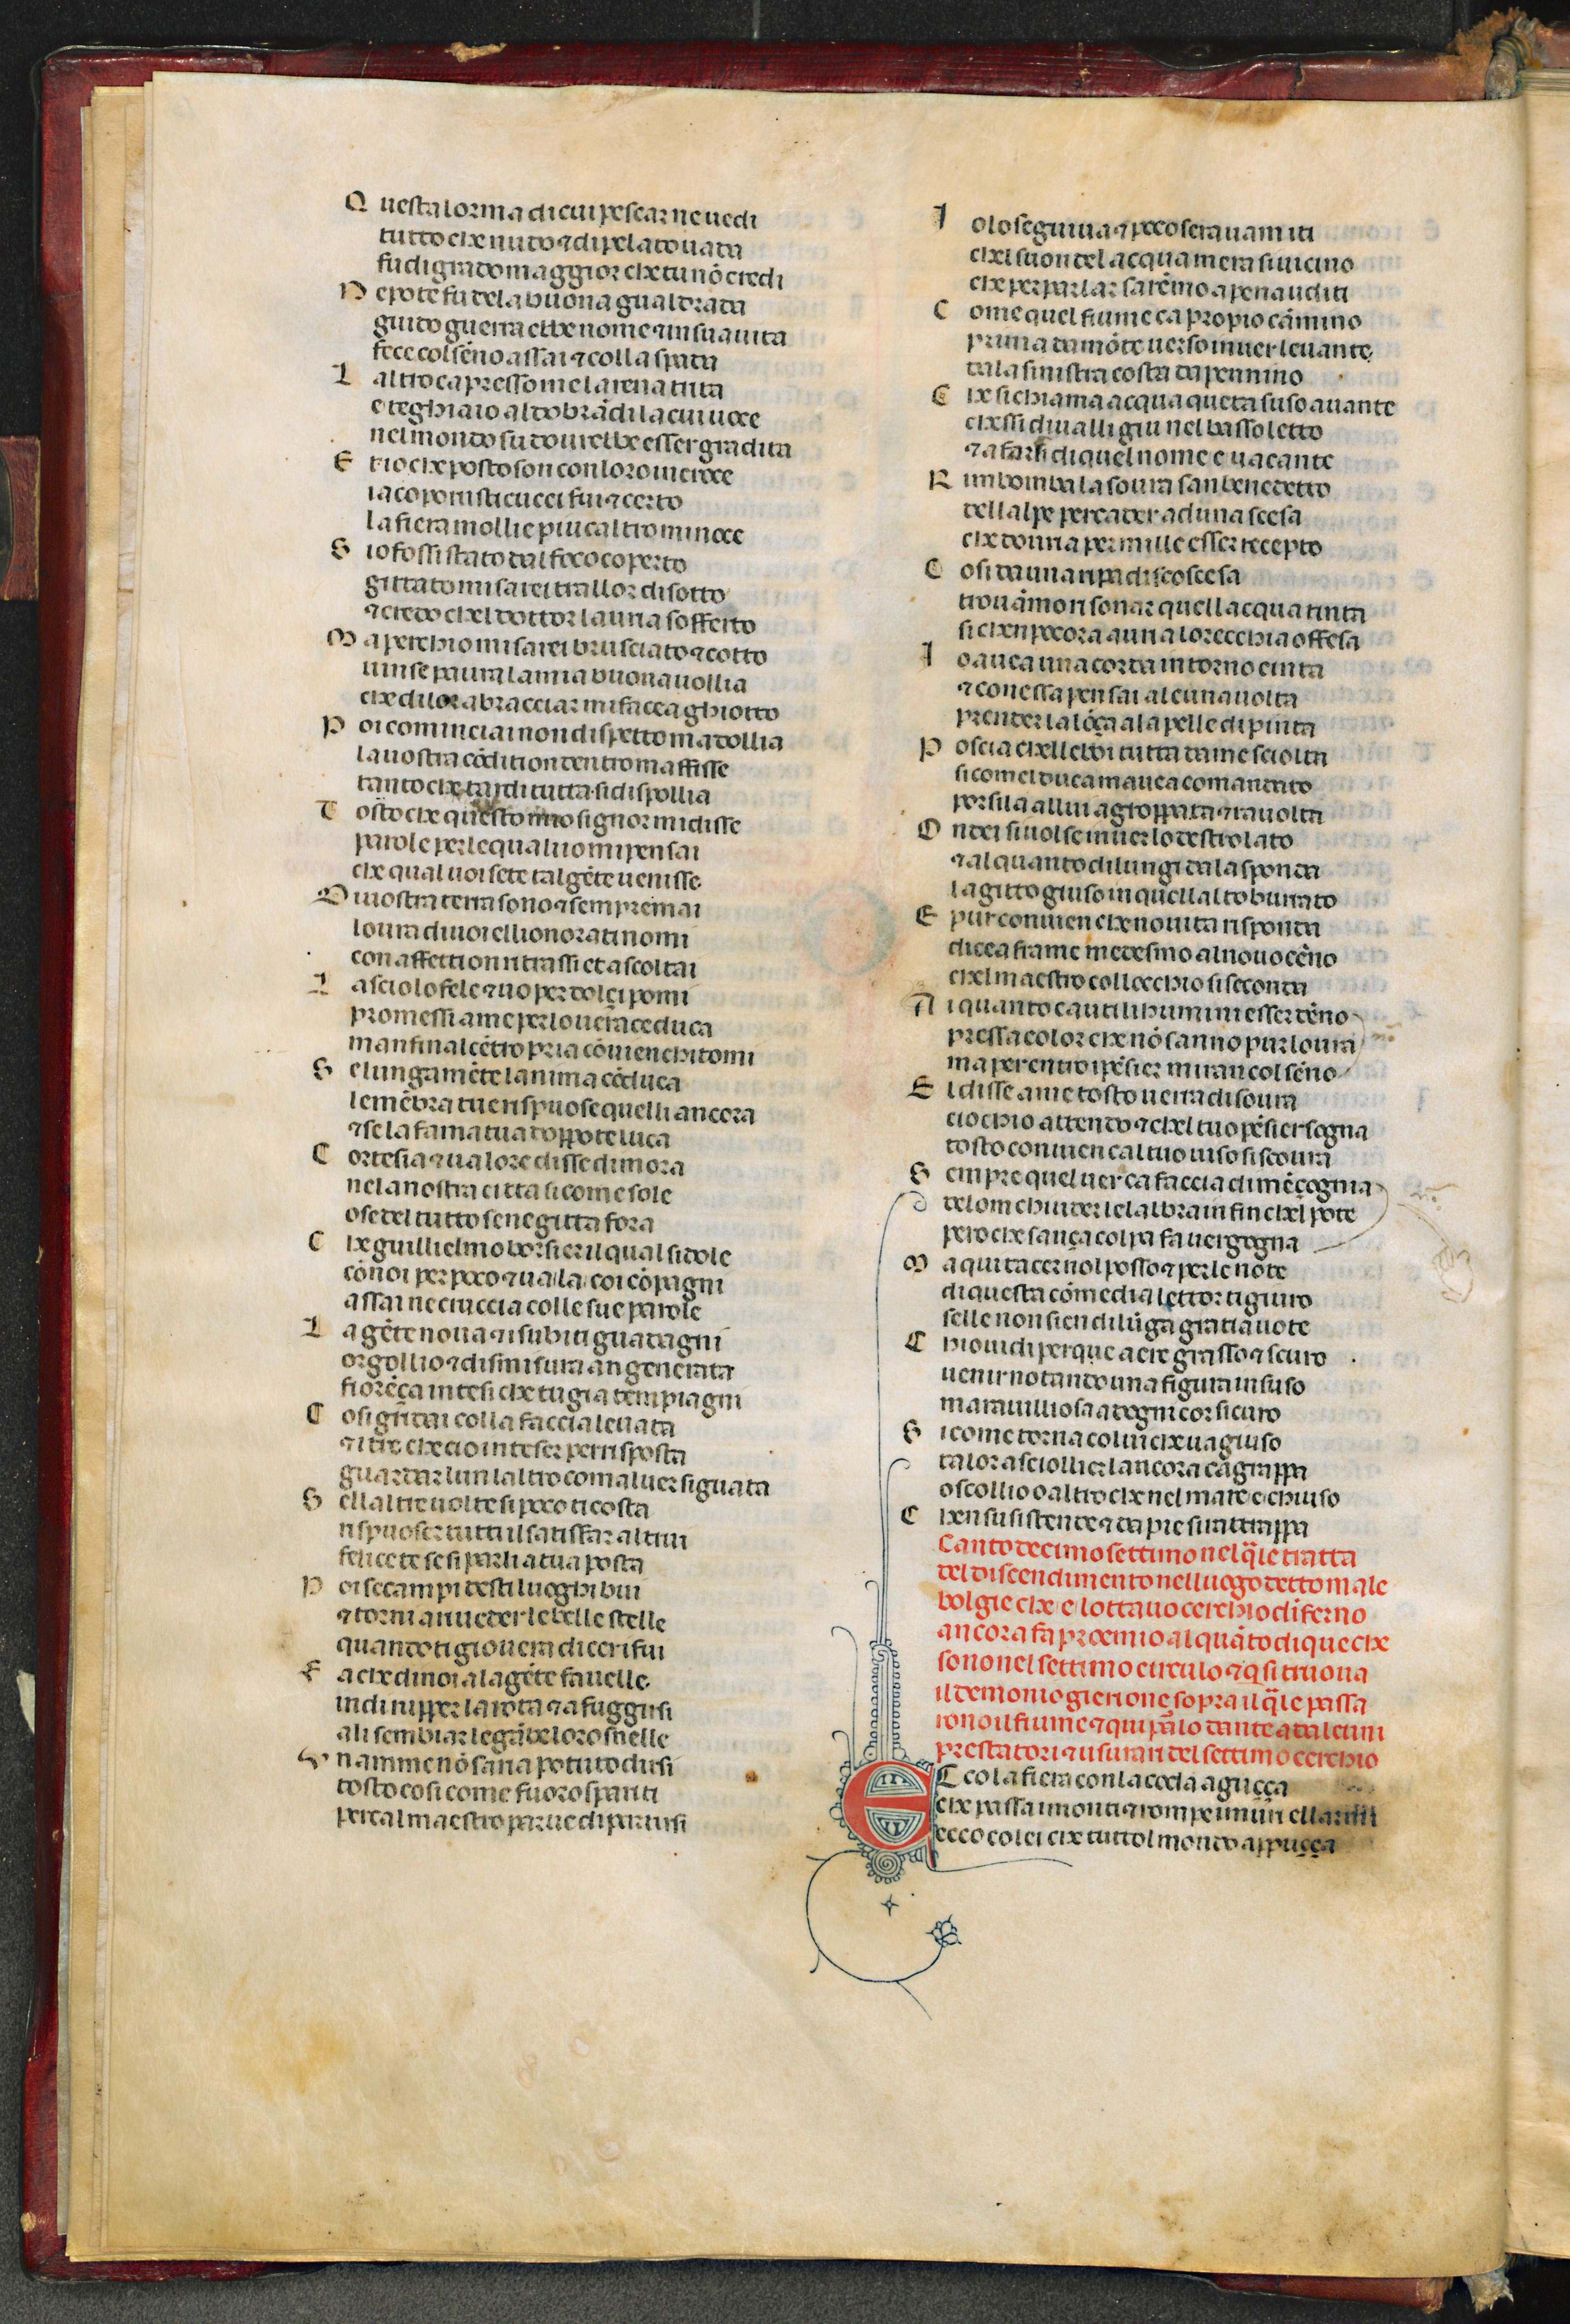 Q uesta lorma di cui pestar ne uedi
tutto che nuto ⁊ dipelato uata
fu di grado maggior che tu nō credi
N epote fu dela buona gualdrada
guito guerra ebbe nome ⁊ in sua uita
fece col sēno assai ⁊ colla spata
L altro capresso me larena trita
e teghiaio aldobrādi la cui uoce
nel mondo su dourebbe esser gradita
E t io che posto son con loro in croce
iacopo rusticucci fui ⁊ certo
la fiera mollie piu caltro mi noce
S io fossi stato dal foco coperto
gittato mi sarei trallor di sotto
⁊ credo chel dottor lauria sofferto
M a perchio mi sarei brusciato ⁊ cotto
uinse paura la mia buona uollia
che di lor abracciar mi facea ghiotto
P oi cominciai non dispetto ma dollia
la uostra cōdition dentro maffisse
tanto che tardi tutta si dispollia
T osto che questo mio signor mi disse
parole per le qual io mi pensai
che qual uoi sete tal gēte uenisse
D i uostra terra sono ⁊ sempre mai
loura di uoi elli onorati nomi
con affettion ritrassi et ascoltai
L ascio lo fele ⁊ uo per dolci pomi
promessi a me per lo uerace duca
ma nfin al cētro pria cōuien chi tomi
S e lungamēte lanima cōduca
le mēbra tue rispuose quelli ancora
⁊ se la fama tua doppo te luca
C ortesia ⁊ ualore di sse dimora
nela nostra citta si come sole
o se del tutto se ne gitta fora
C he guillielmo borsier il qual si dole
cō noi per poco ⁊ ua la coi cōpagni
assai ne cruccia colle sue parole
L a gēte noua ⁊ i subiti guadagni
orgollio ⁊ dismisura an generata
fiorēça in te si che tu gia tē n piagni
C osi gridai colla faccia leuata
⁊ i tre che cio inteser per risposta
guardar lun laltro com al uer si guata
S ellaltre uolte si poco ti costa
rispuoser tutti il satisfar altrui
felice te se si parli a tua posta
P oi se campi desti luoghi bui
⁊ torni a riueder le belle stelle
quando ti giouera dicer i fui
F a che di noi ala gēte fauelle
indi rupper la rota ⁊ a fuggirsi
ali sembiar le gābe loro snelle
U n ammē nō saria potuto dirsi
tosto cosi come fuoro spariti
per cal maestro parue di partirsi
I o lo seguiua ⁊ poco serauam iti
chel suon del acqua mera si uicino
che per parlar sarēmo a pena uditi
C ome quel fiume ca propio cāmino
prima da mōte ueso inuer leuante
dala sinistra costa dapennino
C he si chiama acqua queta suso auante
che ssi diualli giu nel basso letto
⁊ a farli di quel nome e uacante
R imbomba la soura san benedetto
dell alpe per cader ad una scesa
che douria per mille esser recepto
C osi da una ripa discoscesa
trouāmo risonar quell acqua tinta
si che n pocora auria lorecchia offesa
I o auea una corda intorno cinta
⁊ con essa pensai alcuna uolta
prender la lōça ala pelle dipinta
P oscia chellebbi tutta da me sciolta
si come l duca mauea comandato
porsila a llui agroppata ⁊ rauolta
O nd ei si uolse inuer lo destro lato
⁊ alquanto di lungi dala sponda
la gitto giuso in quell alto burrato
E pur conuien che nouita risponda
dicea fra me medesmo al nouo cēno
chel maestro coll occhio si seconda
A i quanto cauti li humini esser dēno
presso a color che nō sanno pur loura
ma per entro i pēsier miran col sēno
E l disse a me tosto uerra di soura
cio chio attendo ⁊ chel tuo pēsier sogna
tosto conuien cal tuo uiso si scoura
S empre quel uer ca faccia di mēcogna
de lom chiuder le labra in fin chel pote
pero che sança colpa fa uergogna
M a qui tacer nol posso ⁊ per le note
di questa comedia lettor ti giuro
selle non sien di lūga gratia uote
C hio uidi per que aere grasso ⁊ scuro
uenir notando una figura in suso
marauilliosa ad ogni cor sicuro
S i come torna colui che ua giuso
talora a scioller lancora cāgrappa
o scollio o altro che nel mare e chiuso
C hen su si stende ⁊ da pie si rattrappa
Canto decimosettimo nel q̄le tratta
del discendimento nel luogo detto male
bolgie che e lottauo cerchio diferno
ancora fa proemio alquāto di que che
sono nel settimo circulo ⁊ q si truoua
il demonio gierione sopra il q̄le passa
rono il fiume ⁊ qui parlo dante ad alcuni
prestatori ⁊ usurari del settimo cerchio
E Ccola fiera con la coda agucça
che passa i monti ⁊ rompe i muri ell armi
ecco colei che tuttol mondo appucça